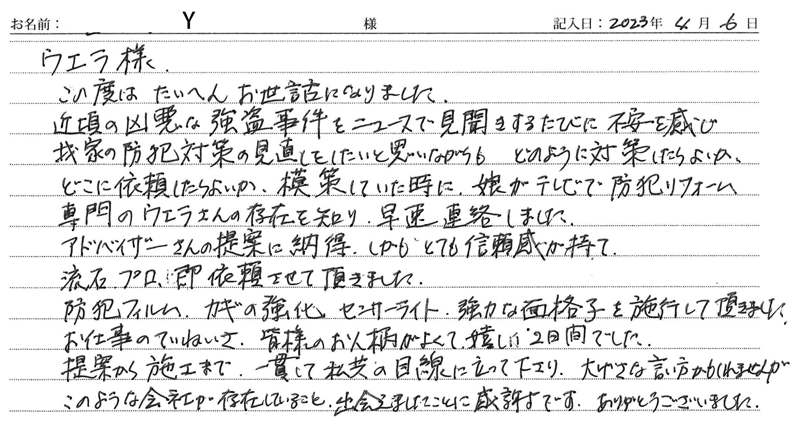 お名前： Y 様 記入日：2023年 4月 6日
ウエラ様
この度は たいへん お世話になりました。
近頃の凶悪な強盗事件をニュースで見聞きするたびに 不安を感じ
我家の防犯対策の見直しをしたいと思いながらも どのように対策したらよいか、
どこに依頼したらよいか、模策していた時に、娘がテレビで防犯リフォーム
専門のウエラさんの存在を知り、早速連絡しました。
アドバイザーさんの提案に納得、しかも とても信頼感が持て、
流石 プロ、即 依頼させて頂きました。
防犯フィルム、カギの強化、センサーライト、強力な面格子を施行して頂きました。
お仕事のていねいさ、皆様のお人柄がよくて、嬉しい2日間でした。
提案から施工まで、一貫して私共の目線に立って下さり、大げさな言い方かもしれませんが
このような会社が存在していること、出会えましたことに感謝です。ありがとうございました。